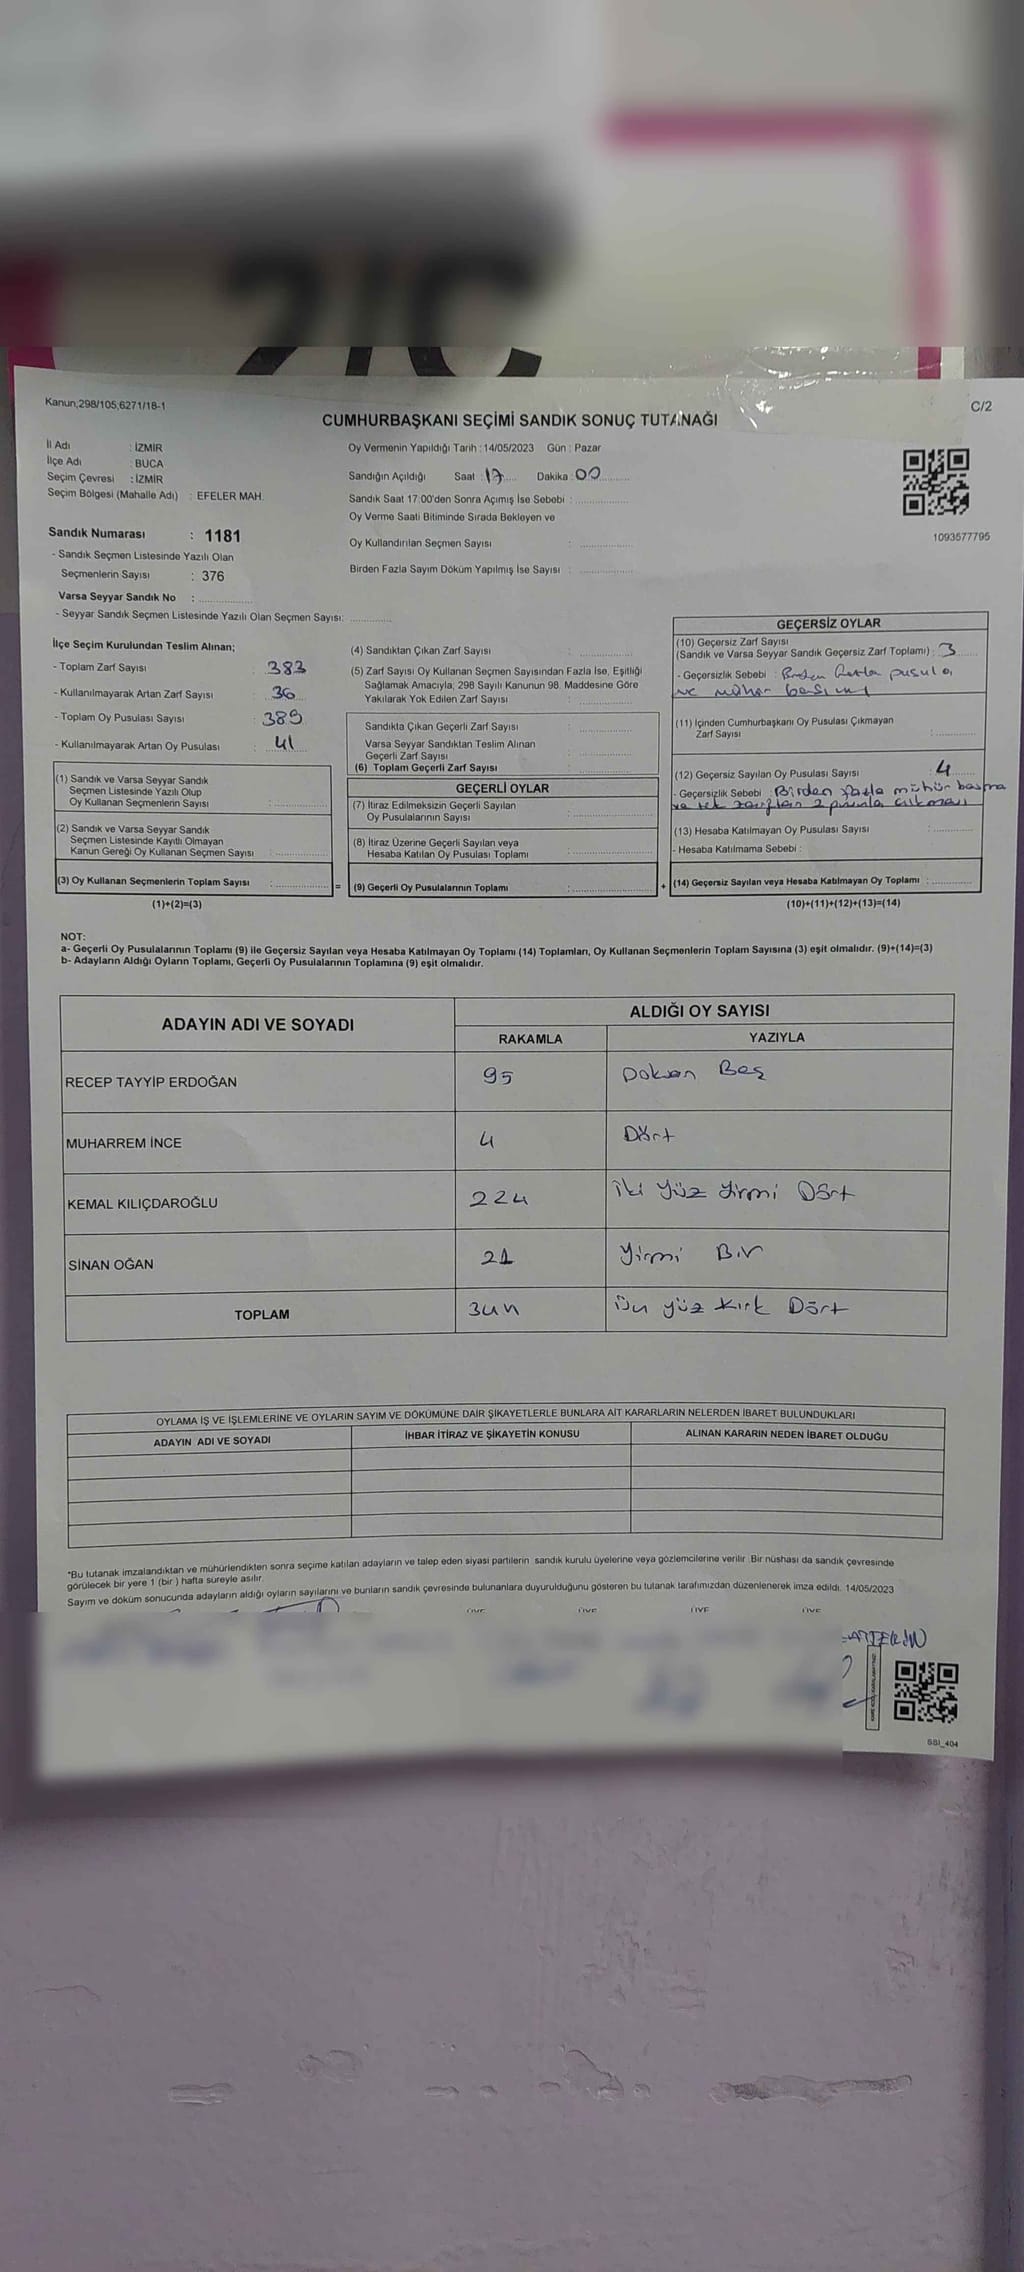 2/C
Kanun;298/105;6271/18-1
C/2
CUMHURBAŞKANI SEÇİMİ SANDIK SONUÇ TUTANAĞI
İl Adı : İZMİR
İlçe Adı : BUCA
Seçim Çevresi : İZMİR
Seçim Bölgesi (Mahalle Adı) : EFELER MAH.
Oy Vermenin Yapıldığı Tarih : 14/05/2023 Gün : Pazar
Sandığın Açıldığı Saat : 17 Dakika : 00
Sandık Saat 17:00'den Sonra Açımış İse Sebebi :
Oy Verme Saati Bitiminde Sırada Bekleyen ve
Oy Kullandırılan Seçmen Sayısı :
Birden Fazla Sayım Döküm Yapılmış İse Sayısı :
1093577795
Sandık Numarası : 1181
- Sandık Seçmen Listesinde Yazılı Olan
Seçmenlerin Sayısı : 376
Varsa Seyyar Sandık No :
- Seyyar Sandık Seçmen Listesinde Yazılı Olan Seçmen Sayısı:
İlçe Seçim Kurulundan Teslim Alınan;
- Toplam Zarf Sayısı : 383
- Kullanılmayarak Artan Zarf Sayısı : 36
- Toplam Oy Pusulası Sayısı : 389
- Kullanılmayarak Artan Oy Pusulası : 41
(1) Sandık ve Varsa Seyyar Sandık
Seçmen Listesinde Yazılı Olup
Oy Kullanan Seçmenlerin Sayısı :
(2) Sandık ve Varsa Seyyar Sandık
Seçmen Listesinde Kayıtlı Olmayan
Kanun Gereği Oy Kullanan Seçmen Sayısı :
(3) Oy Kullanan Seçmenlerin Toplam Sayısı :
(1)+(2)=(3)
(4) Sandıktan Çıkan Zarf Sayısı :
(5) Zarf Sayısı Oy Kullanan Seçmen Sayısından Fazla İse, Eşitliği
Sağlamak Amacıyla, 298 Sayılı Kanunun 98. Maddesine Göre
Yakılarak Yok Edilen Zarf Sayısı :
Sandıkta Çıkan Geçerli Zarf Sayısı :
Varsa Seyyar Sandıktan Teslim Alınan
Geçerli Zarf Sayısı :
(6) Toplam Geçerli Zarf Sayısı :
GEÇERLİ OYLAR
(7) İtiraz Edilmeksizin Geçerli Sayılan
Oy Pusulalarının Sayısı :
(8) İtiraz Üzerine Geçerli Sayılan veya
Hesaba Katılan Oy Pusulası Toplamı :
= (9) Geçerli Oy Pusulalarının Toplamı :
GEÇERSİZ OYLAR
(10) Geçersiz Zarf Sayısı
(Sandık ve Varsa Seyyar Sandık Geçersiz Zarf Toplamı) : 3
- Geçersizlik Sebebi : Birden fazla pusula
ve mühür basımı
(11) İçinden Cumhurbaşkanı Oy Pusulası Çıkmayan
Zarf Sayısı :
(12) Geçersiz Sayılan Oy Pusulası Sayısı : 4
- Geçersizlik Sebebi Birden fazla mühür basma
ve tek zarftan 2 pusula çıkması
(13) Hesaba Katılmayan Oy Pusulası Sayısı :
- Hesaba Katılmama Sebebi :
+ (14) Geçersiz Sayılan veya Hesaba Katılmayan Oy Toplamı :
(10)+(11)+(12)+(13)=(14)
NOT:
a- Geçerli Oy Pusulalarının Toplamı (9) ile Geçersiz Sayılan veya Hesaba Katılmayan Oy Toplamı (14) Toplamları, Oy Kullanan Seçmenlerin Toplam Sayısına (3) eşit olmalıdır. (9)+(14)=(3)
b- Adayların Aldığı Oyların Toplamı, Geçerli Oy Pusulalarının Toplamına (9) eşit olmalıdır.
ADAYIN ADI VE SOYADI
ALDIĞI OY SAYISI
RAKAMLA YAZIYLA
RECEP TAYYİP ERDOĞAN 95 Doksan Beş
MUHARREM İNCE 4 Dört
KEMAL KILIÇDAROĞLU 224 İki Yüz Yirmi Dört
SİNAN OĞAN 21 Yirmi Bir
TOPLAM 344 Üç yüz Kırk Dört
OYLAMA İŞ VE İŞLEMLERİNE VE OYLARIN SAYIM VE DÖKÜMÜNE DAİR ŞİKAYETLERLE BUNLARA AİT KARARLARIN NELERDEN İBARET BULUNDUKLARI
ADAYIN ADI VE SOYADI İHBAR İTİRAZ VE ŞİKAYETİN KONUSU ALINAN KARARIN NEDEN İBARET OLDUĞU
*Bu tutanak imzalandıktan ve mühürlendikten sonra seçime katılan adayların ve talep eden siyasi partilerin sandık kurulu üyelerine veya gözlemcilerine verilir. Bir nüshası da sandık çevresinde
görülecek bir yere 1 (bir) hafta süreyle asılır.
Sayım ve döküm sonucunda adayların aldığı oyların sayılarını ve bunların sandık çevresinde bulunanlara duyurulduğunu gösteren bu tutanak tarafımızdan düzenlenerek imza edildi. 14/05/2023
ÜYE ÜYE ÜYE ÜYE
SSI_404